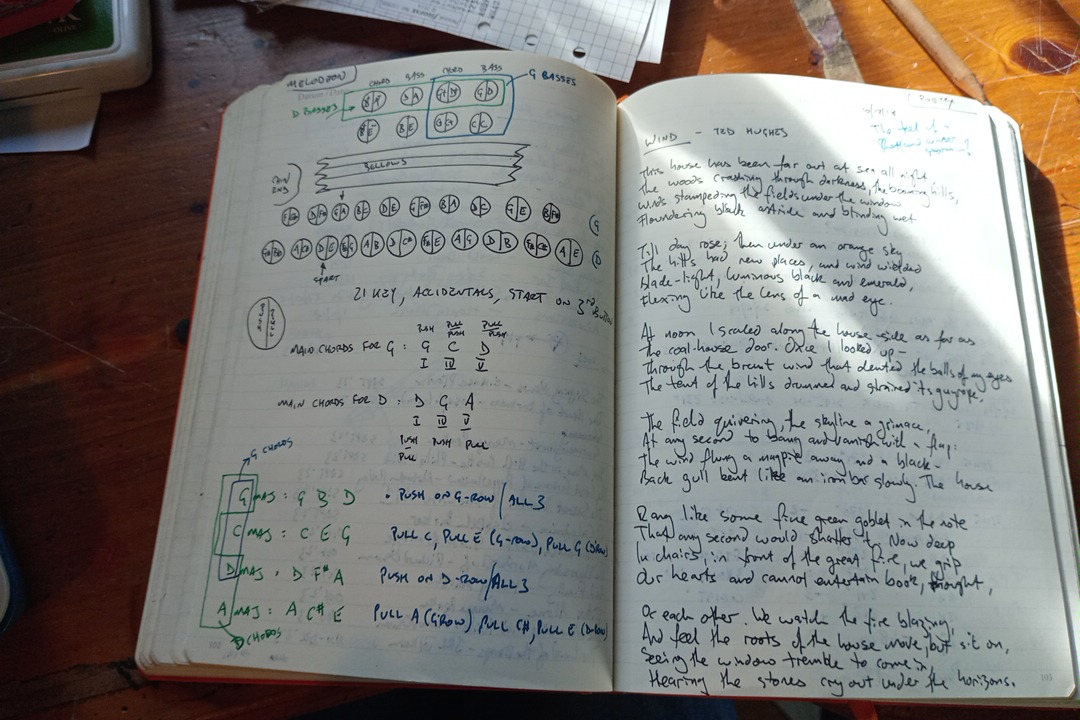 MELODEON
CHORD BASS CHORD BASS
G BASSES
D BASSES
B E C C
BELLOWS
CHIN END
G A B C D E B A D C G E
D E A B D C# F# E A G D B A E
START
21 KEY, ACCIDENTALS, START ON 3RD BUTTON
PUSH PULL PUSH PULL PUSH
MAIN CHORDS FOR G: G C D
I IV V
MAIN CHORDS FOR D: D G A
I IV V
PUSH PULL PUSH PULL
G CHORDS
G MAJ: G B D • PUSH ON G-ROW/ALL 3
C MAJ: C E G PULL C, PULL E (G-ROW), PULL G (D-ROW)
D MAJ. D F# A PUSH ON D-ROW/ALL 3
A MAJ: A C# E PULL A (G-ROW) PULL C#, PULL E (D-ROW)
D CHORDS
POETRY
WIND – TED HUGHES
This house has been far out at sea all night
The woods crashing through darkness, the booming hills,
Winds stampeding the fields under the window
Floundering black astride and blinding wet
Till day rose; then under an orange sky
The hills had new places, and wind wielded
Blade-light, luminous black and emerald,
Flexing like the lens of a mad eye.
At noon I scaled along the house-side as far as
The coal-house door. Once I looked up –
Through the brunt wind that dented the balls of my eyes
The tent of the hills drummed and strained its guyrope.
The field quivering, the skyline a grimace,
At any second to bang and vanish with a flap:
The wind flung a magpie away and a black-
Back gull bent like an iron bar slowly. The house
Rang like some fine green goblet in the note
That any second would shatter it. Now deep
In chairs, in front of the great fire, we grip
Our hearts and cannot entertain book, thought,
Or each other. We watch the fire blazing,
And feel the roots of the house move, but sit on,
Seeing the window tremble to come in,
Hearing the stones cry out under the horizons.
103